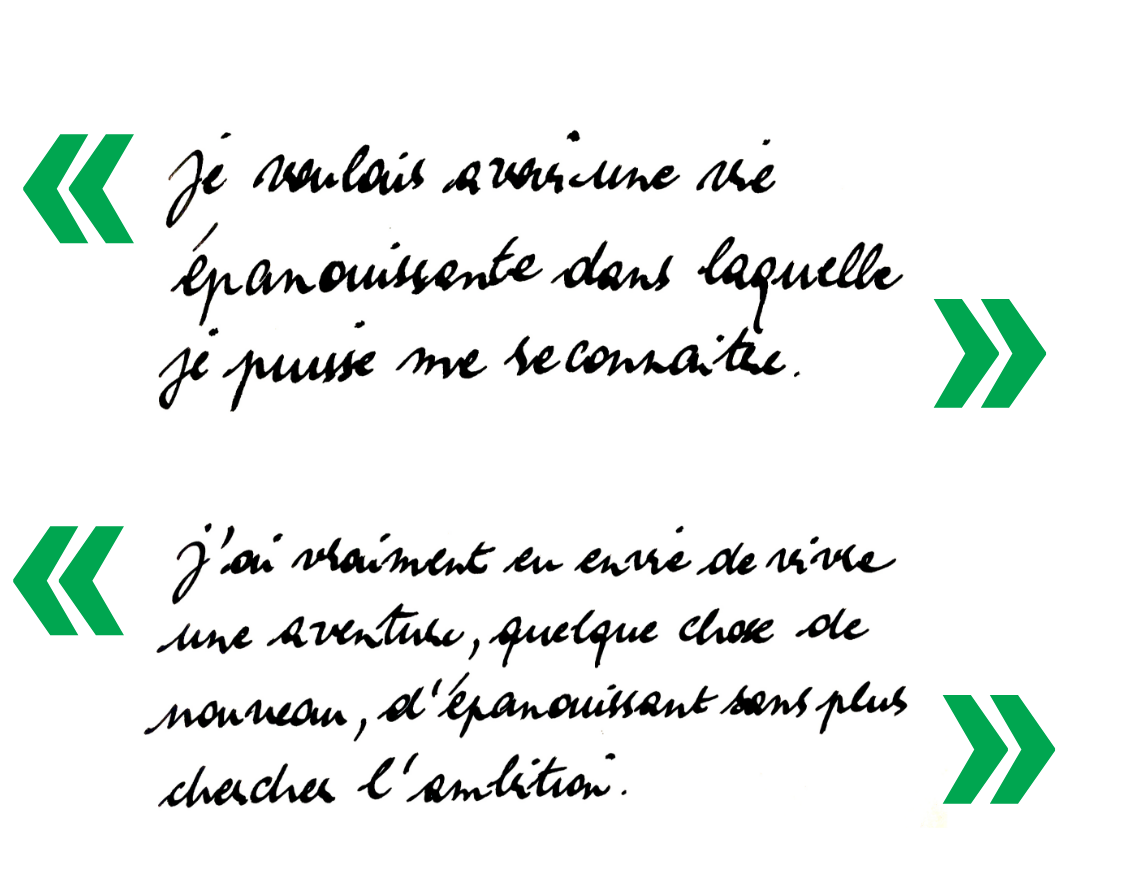 « je voulais avoir une vie
épanouissante dans laquelle
je puisse me reconnaitre. »
« j'ai vraiment eu envie de vivre
une aventure, quelque chose de
nouveau, d'épanouissant sans plus
chercher l'ambition. »